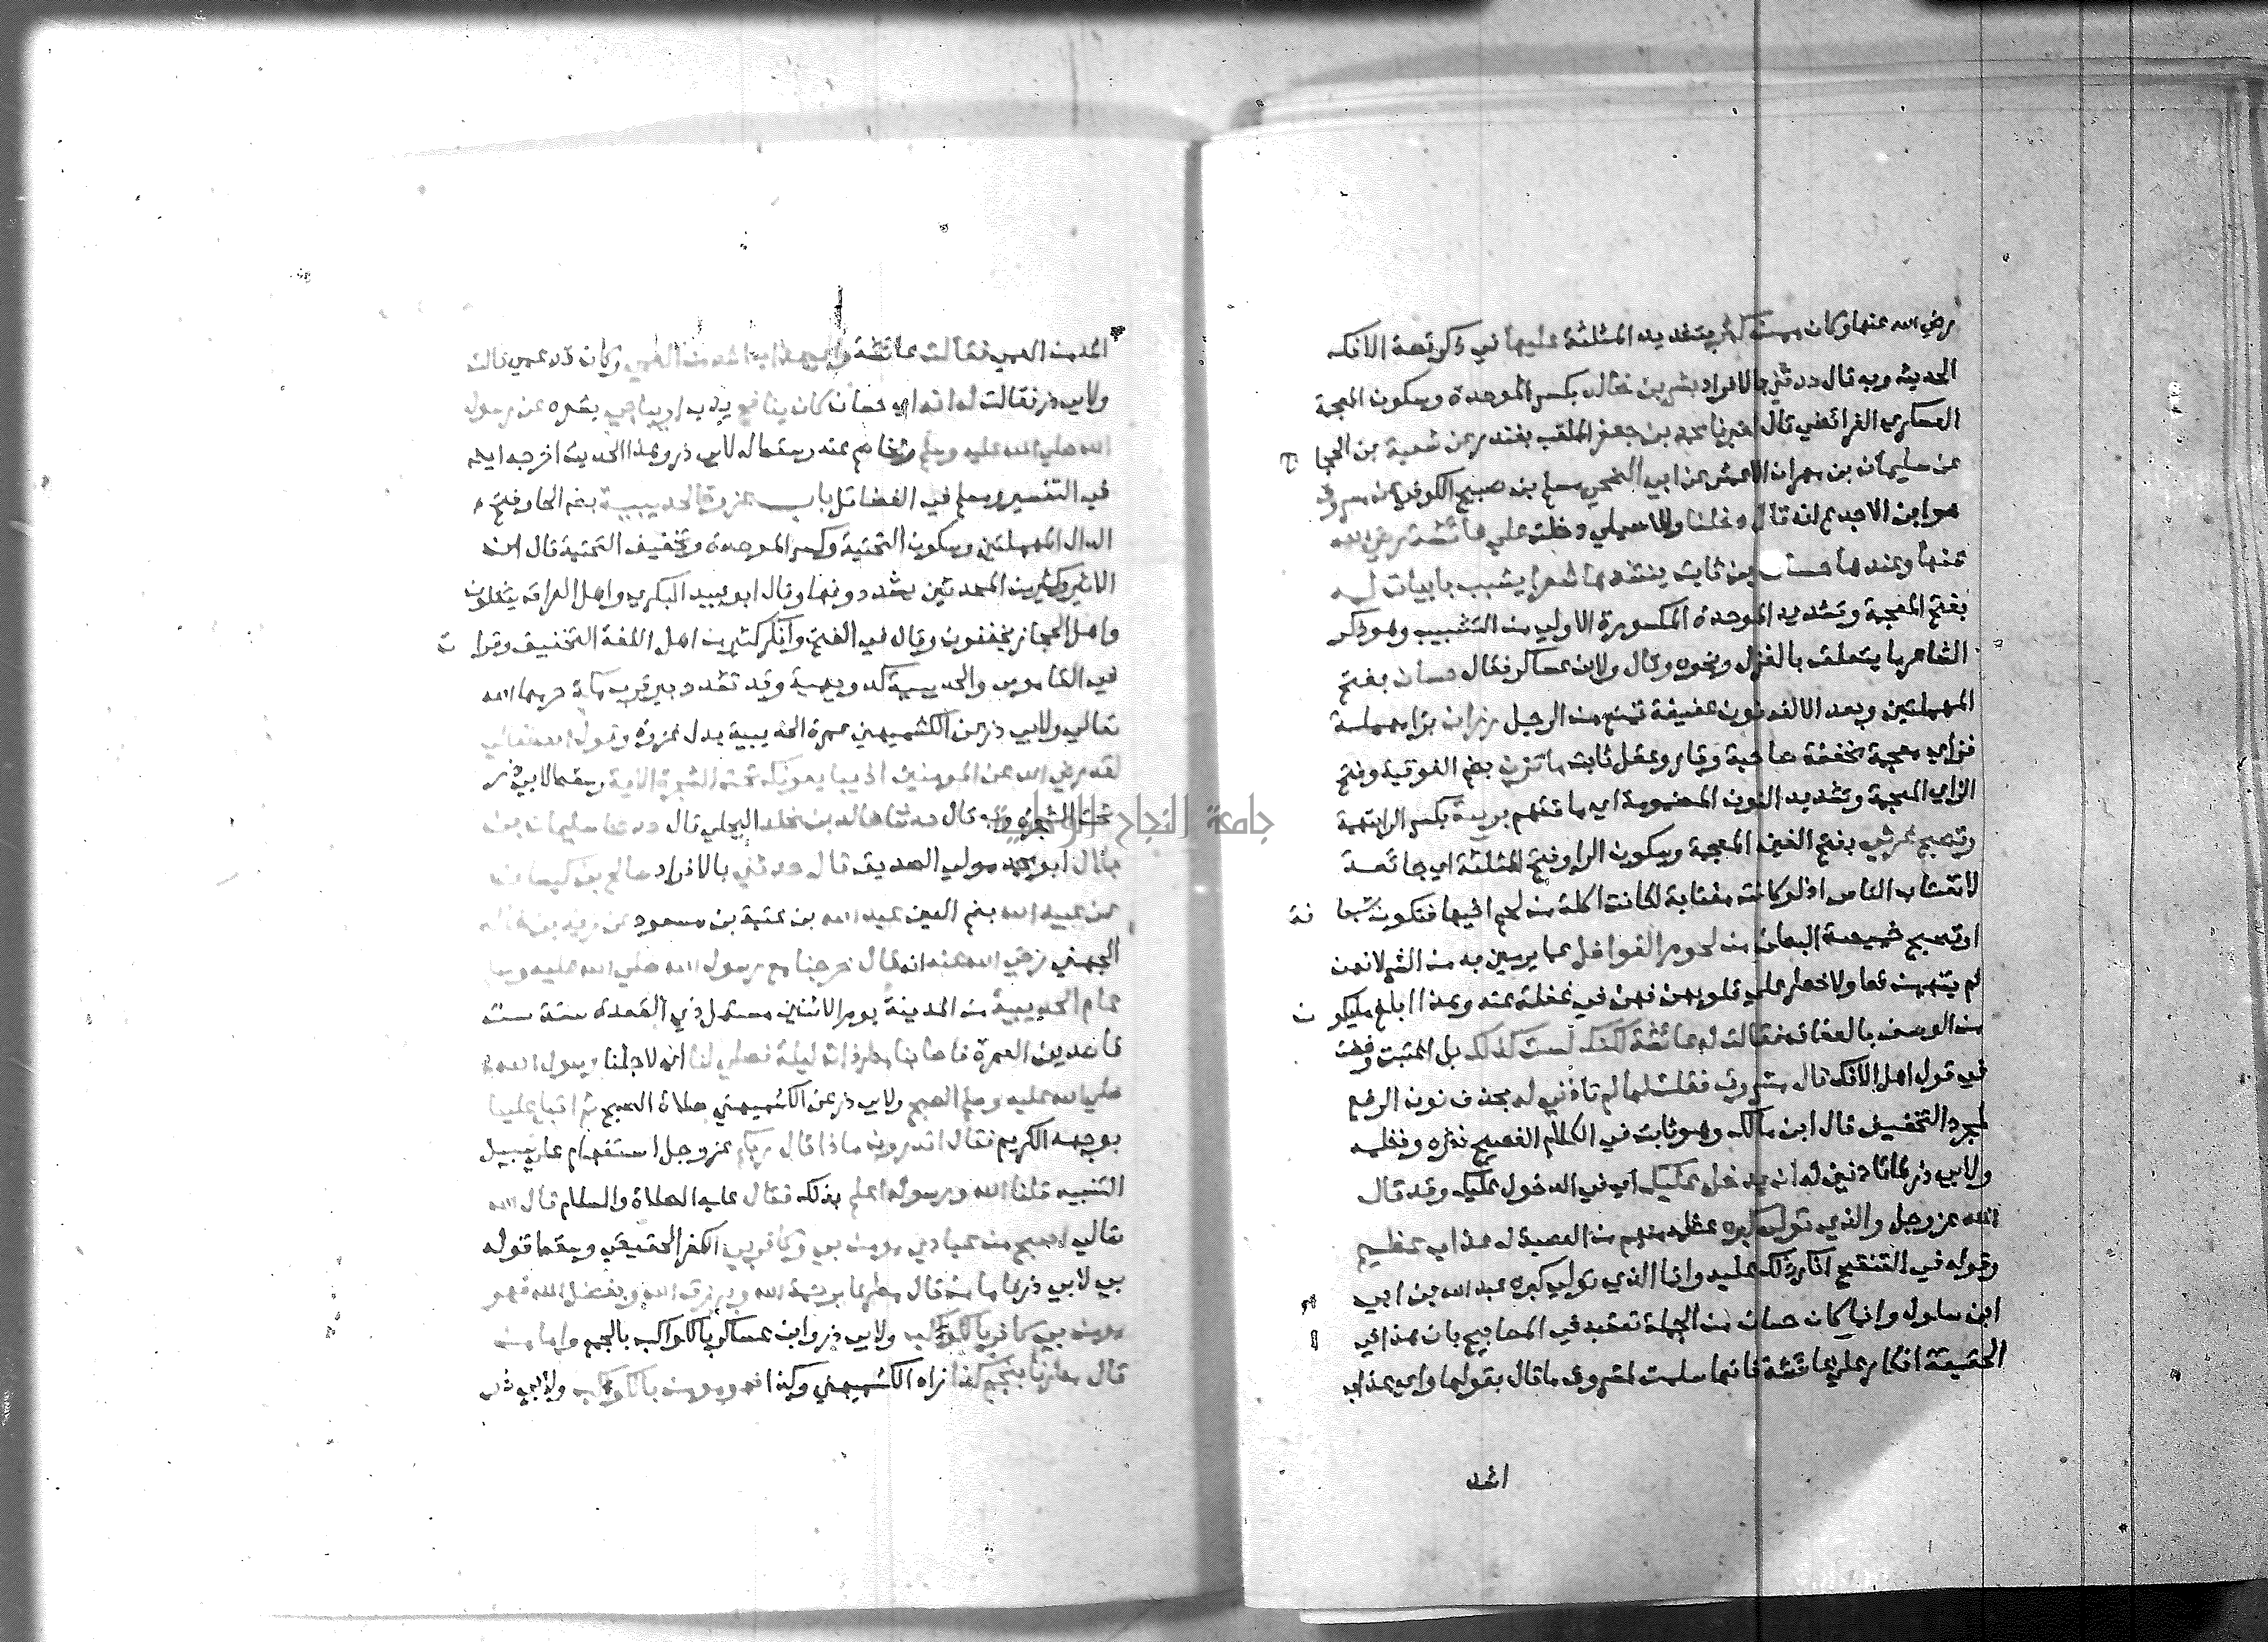 رضي الله عنها وكان ممن كثر بتشديد المثلثة عليها في ذكر قصة الافك
الحديث وبه قال حدثني بالافراد بشر بن خالد بكسر الموحدة وسكون المعجمة
العسكري الفرائضي قال اخبرنا محمد بن جعفر الملقب بغندر عن شعبة بن الحجا ج
عن سليمان بن مهران الاعمش عن ابي الضحى مسلم بن صبيح الكوفي عن مسروق
هو ابن الاجدع انه قال دخلنا وللاصيلي دخلت علي عائشة رضي الله
عنها وعندها حسان بن ثابت ينشدها شعرا يشبب بابيات له
بفتح المعجمة وتشديد الموحدة المكسورة الاولي من التشبيب وهو ذكر
الشاعر ما يتعلق بالغزل ونحوه وقال ولابن عساكر فقال حسان بفتح
المهملتين وبعد الالف نون عفيفة تمتنع من الرجل رزان برا مهملة
فزاي معجمة مخففة صاحبة وقار وعقل ثابت ما تزن بضم الفوقية وفتح
الزاي المعجمة وتشديد النون المضمومة اي ما تتهم بريبة بكسر الرا بتهمة
وتصبح غرثي بفتح الغين المعجمة وسكون الرا وفتح المثلثة اي جائعة
لا تغتاب الناس اذ لو كانت مغتابة لكانت اكلة من لحم اخيها فتكون شبعا نة
او تصبح خميصة البطن من لحوم الغوافل عما يرمين به من الشر لانهن
لم يتهمن قط ولا خطر علي قلوبهن فهن في غفلة عنه وهذا ابلغ ما يكو ن
من الوصف بالعفاف فقالت له عائشة لكنك لست كذلك بل اغتبت وخضت
في قول اهل الافك قال مسروق فقلت لها لم تاذني له بحذف نون الرفع
لمجرد التخفيف قال ابن مالك وهو ثابت في الكلام الفصيح نثره ونظمه
ولابي ذر لم تاذنين له ان يدخل عليك اي في الدخول عليك وقد قال
الله عز وجل والذي تولي كبره عظمه منهم من العصبة له عذاب عظيم
وقوله في التنقيح انكر ذلك عليه وانما الذي تولي كبره عبد الله بن ابي
ابن سلول وانما كان حسان من الجملة تعقبه في المصابيح بان هذا في
الحقيقة انكار علي عائشة فانها سلمت لمسروق ما قال بقولها واي عذاب
اشد
اشد من العمي فقالت عائشة واي عذاب اشد من العمي وكان قد عمي قالت
ولابي ذر فقالت له انه اي حسان كان ينافح يذب او يهاجي بشعره عن رسول
الله صلي الله عليه وسلم ويخاصم عنه وسقط له لابي ذر وهذا الحديث اخرجه ايضا
في التفسير ومسلم في الفضائل باب غزوة الحديبية بضم الحا وفتح
الدال المهملتين وسكون التحتية وكسر الموحدة وتخفيف التحتية قال ابن
الاثير وكثير من المحدثين يشددونها وقال ابو عبيد البكري واهل العراق يثقلون
واهل الحجاز يخففون وقال في الفتح وانكر كثير من اهل اللغة التخفيف وقرا ت
في القاموس والحديبية كدويهية وقد تشدد بير قرب مكة حرسها الله
تعالي ولابي ذر عن الكشميهني عمرة الحديبية بدل غزوة وقول الله تعالي
لقد رضي الله عن المومنين اذ يبايعونك تحت الشجرة الاية وسقط لابي ذر
تحت الشجرة وبه قال حدثنا خالد بن مخلد البجلي قال حدثنا سليمان بن
بلال ابو محمد مولي الصديق قال حدثني بالافراد صالح بن كيسان
عن عبيد الله بضم العين عبد الله بن عتبة بن مسعود عن زيد بن خالد
الجهني رضي الله عنه انه قال خرجنا مع رسول الله صلي الله عليه وسلم
عام الحديبية من المدينة يوم الاثنين مستهل ذي القعدة سنة ست
قاصدين العمرة فاصابنا مطر ذات ليلة فصلي لنا اي لاجلنا رسول الله
صلي الله عليه وسلم الصبح ولابي ذر عن الكشميهني صلاة الصبح ثم اقبل علينا
بوجهه الكريم فقال اتدرون ماذا قال ربكم عز وجل استفهام علي سبيل
التنبيه قلنا الله ورسوله اعلم بذلك فقال عليه الصلاة والسلام قال الله
تعالي اصبح من عبادي مومن بي وكافر بي الكفر الحقيقي وسقط قوله
بي لابي ذر فاما من قال مطرنا برحمة الله وبرزق الله وبفضل الله فهو
مومن بي كافر بالكوكب ولابي ذر وابن عساكر بالكواكب بالجمع واما من
قال مطرنا بنجم كذا زاد الكشميهني وكذا فهو مومن بالكوكب ولابي ذر
جامعة النجاح الوطنية